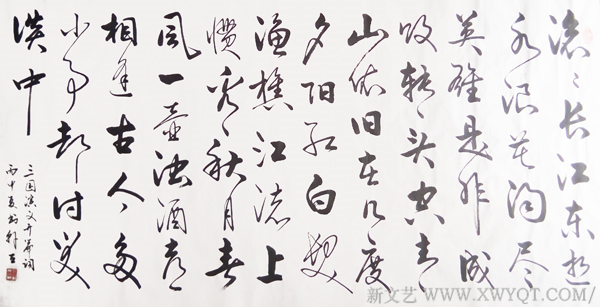 滚滚长江东逝
水浪花淘尽
英雄是非成
败转头空青
山依旧在几度
夕阳红白发
渔樵江渚上
惯看秋月春
风一壶浊酒喜
相逢古今多
少事都付笑
谈中
三国演义开篇词
丙申夏
新文艺 WWW.XWYQT.COM/